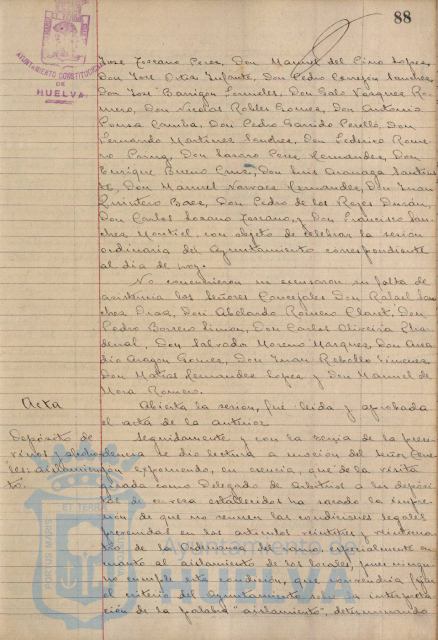 88
AYUNTAMIENTO CONSTITUCIONAL
DE
HUELVA
José Lozano Perez, Don Manuel del Pino Lopez,
Don José Oria Infante, Don Pedro Cerrejon Sanchez,
Don José Barrigon Don Galo Vazquez Ro-
mero, Don Nicolas Robles Gomez, Don Antonio
Ponsa Camba, Don Pedro Garrido Perelló, Don
Fernando Martinez Sanchez, Don Federico Rome-
ro Don Lazaro Pere Fernandez, Don
Enrique Bueno Cruz, Don Luis
Don Manuel Narvaez Fernandez, Don Juan
Quintero Baez, Don Pedro de los Reyes Durán,
Don Carlos Lozano Lozano, y Don Francisco San-
chez Montiel, con objeto de celebrar la sesion
ordinaria del Ayuntamiento correspondiente
al dia de hoy.
No concurrieron ni excusaron su falta de
asistencia los Señores Concejales Don Rafael San-
chez Diaz, Don Abelardo Romero Claret, Don
Pedro Borrero Limon, Don Carlos Oliveira
Don Salvador Moreno Marquez, Don
Aragon Gomez, Don Juan Rebollo Jimenez
Don Matias Fernandez Lopez y Don Manuel de
Mora Romero.
Acta
Abierta la sesion, fué leida y aprobada
el acta de la anterior.
Depósito de
vinos y
aislamien-
to.
Seguidamente y con la venia de la presi-
dencia se dio lectura a mocion del Señor
exponiendo, en esencia, que de la visita
girada como Delegado de Arbitrios a los depósi-
tos de establecidos ha sacado la impre-
sion de que no reunen las condiciones legales
prevenidas en los articulos veintitres y veinticua-
tro de la Ordenanza del ramo, especialmente en
cuanto al aislamiento de los locales, pues ningu-
no cumple esta condicion, que convendria fijar
el criterio del Ayuntamiento sobre la interpreta-
ción de la palabra "aislamiento", determinando
Ayuntamiento de
HUELVA